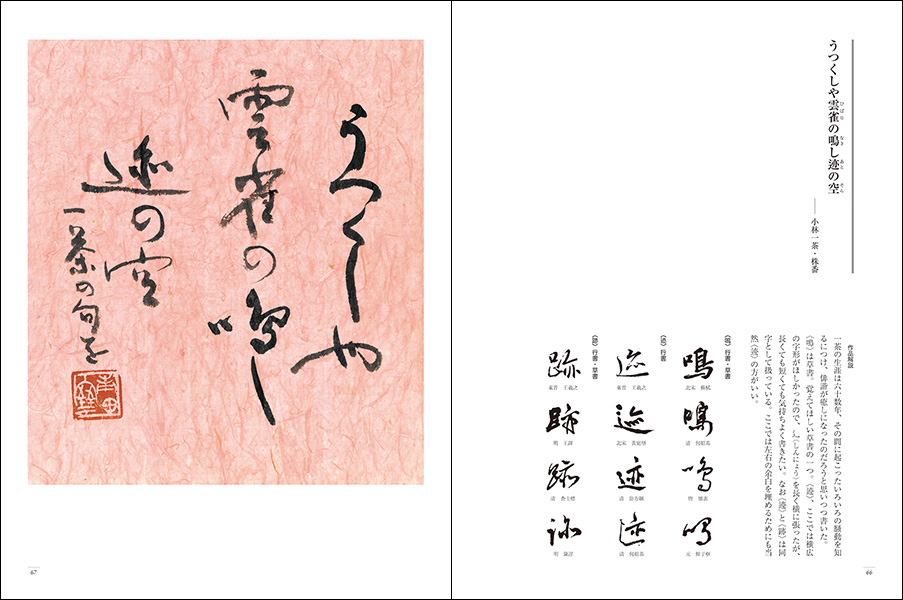 うつくしや雲雀の鳴し迹の空
ひばり なき あと そら
―― 小林一茶・株番
作品解説
一茶の生涯は六十数年、その間に起こったいろいろの騒動を知
るにつけ、俳諧が癒しになったのだろうと思いつつ書いた。
〈鳴〉は草書、覚えてほしい草書の一つ。〈迹〉、ここでは横広
の字形がほしかったので、辶(しんにょう)を長く横に張ったが、
長くても短くても気持ちよく書きたい。なお〈迹〉と〈跡〉は同
字として扱っている。ここでは左右の余白を埋めるためにも当
然〈迹〉の方がいい。
〈鳴〉行書・草書
鳴
北宋 蘇軾
鳴
清 何紹基
鳴
唐 懐素
鳴
元 鮮于枢
〈迹〉行書・草書
迹
東晋 王羲之
迹
北宋 黄庭堅
迹
清 翁方綱
迹
清 何紹基
〈跡〉行書・草書
跡
東晋 王羲之
跡
明 王鐸
跡
清 査士標
跡
明 陳淳
66
うつくしや
雲雀の鳴し
迹の空
一茶の句を
67